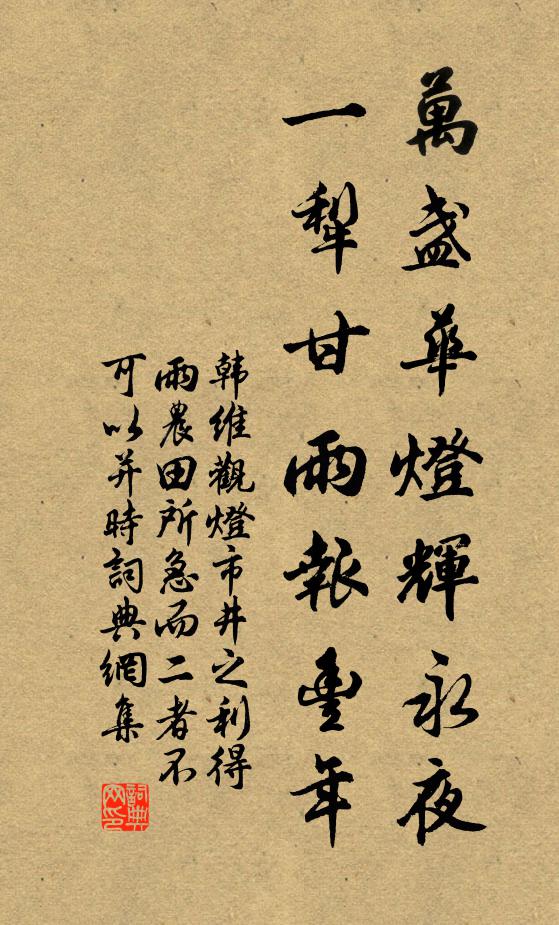 萬盞華燈輝永夜
一犁甘雨報豐年
韩維觀燈市井之利得
雨農田所急而二者不
可以并時詞典網集
詞典
网印